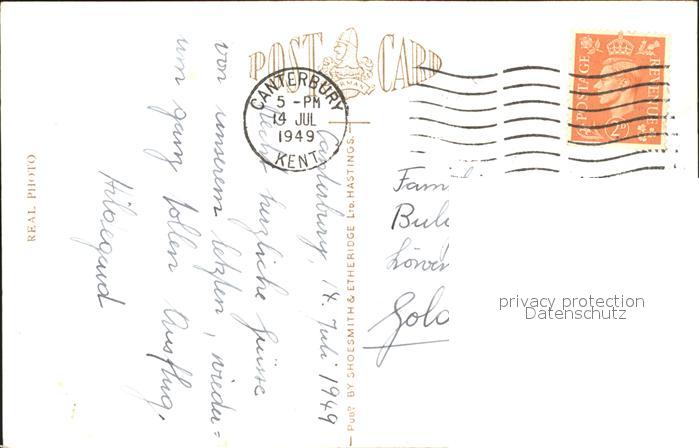 POST CARD
GERMAN
CANTERBURY
5 - PM
14 JUL
1949
KENT
POSTAGE REVENUE
2D
REAL PHOTO
PUBD BY SHOESMITH & ETHERIDGE LTD. HASTINGS.
Canterbury, 14. Juli 1949
Recht herzliche Grüsse
von unserem letzten, wieder=
um ganz tollen Ausflug.
Hildegard
Fami
Löwen
Gold
privacy protection
Datenschutz